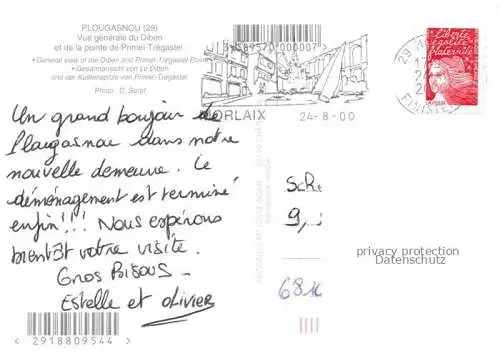 PLOUGASNOU (29)
Vue générale du Diben
et de la pointe de Primel-Trégastel
General view of the Diben and Primel-Trégastel Point
Gesamtansicht von Le Diben
und der Küstenspitze von Primel-Trégastel.
Photo : D. Sorel
3 389570 000007
MORLAIX 24-8-00
29
FINISTERE
Liberté
égalité
fraternité
LA POSTE
Un grand bonjour de
Plougasnou dans notre
nouvelle demeure. Le
déménagement est terminé
enfin!!! Nous espérons
bientôt votre visite.
Gros Bisous -
Estelle et Olivier
SCH
9,
6816
privacy protection
Datenschutz
< 2918809544 >